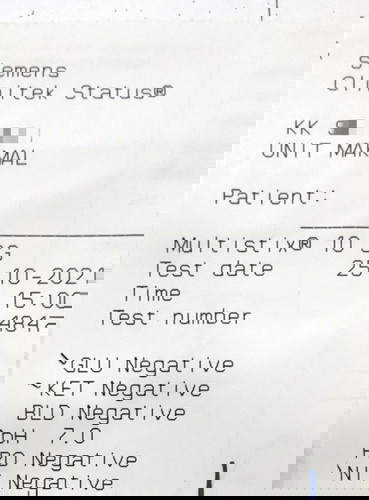 Siemens
Clinitek Status®
KK
UNIT MAKMAL
Patient:
Multistix® 10 SG
Test date
25-10-2021
Time
Test number
GLU Negative
KET Negative
BLD Negative
pH 7.0
PRO Negative
NIT Negative